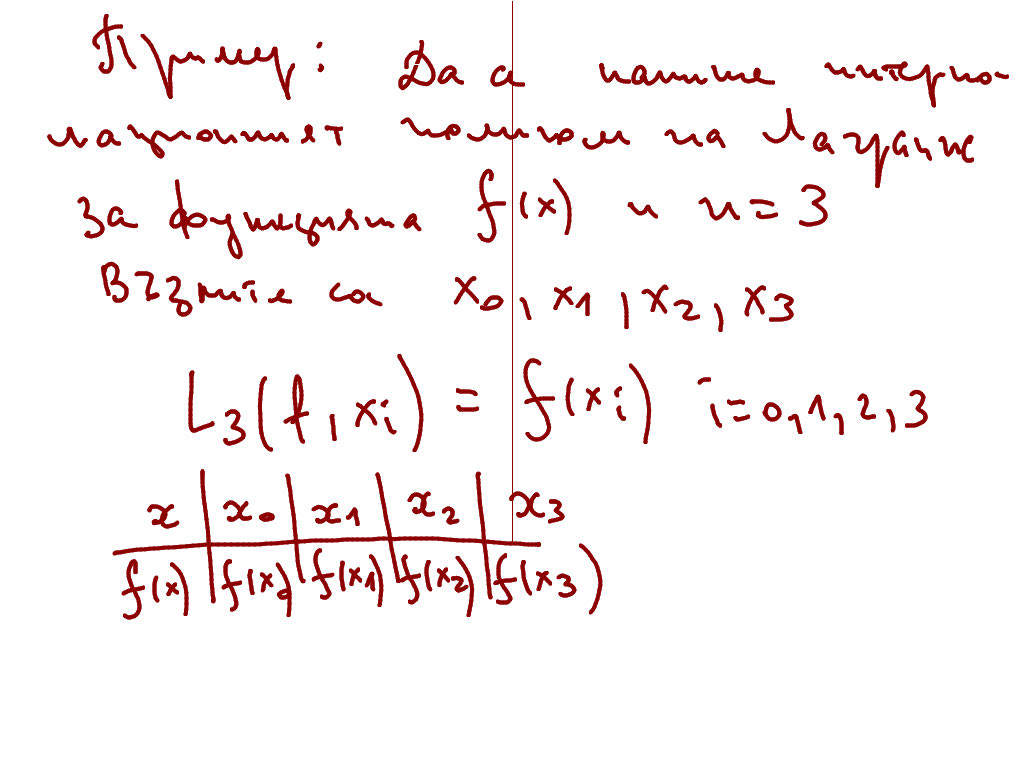 Пример: Да се напише интерпо-
лационният полином на Лагранж
за функцията f(x) и n = 3
Възлите са x₀, x₁, x₂, x₃
L₃(f, xᵢ) = f(xᵢ) i = 0, 1, 2, 3
x | x₀ | x₁ | x₂ | x₃
f(x) | f(x₀) | f(x₁) | f(x₂) | f(x₃)